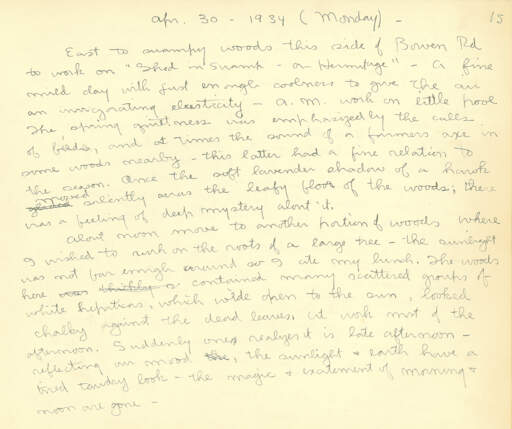 Apr. 30 - 1934 (Monday) - 15
East to swampy woods this side of Bowen Rd
to work on "Shed in Swamp - a Hermitage" - A fine
mild day with just enough coolness to give the air
an invigorating elasticity - A.M. work on little pool
The spring quietness was emphasized by the calls
of birds, and at times the sound of a farmers axe in
some woods nearby - this latter had a fine relation to
the season. Once the soft lavender shadow of a hawk
moved silently across the leafy floor of the woods; there
was a feeling of deep mystery about it.
About noon move to another portion of woods where
I wished to work on the roots of a large tree - The sunlight
was not far enough around so I ate my lunch. The woods
here contained many scattered groups of
white hepaticas, which wide open to the sun, looked
chalky against the dead leaves. At work most of the
afternoon. Suddenly one realizes it is late afternoon -
reflecting on mood, the sunlight & earth have a
tired tawdry look - the magic & excitement of morning &
noon are gone -